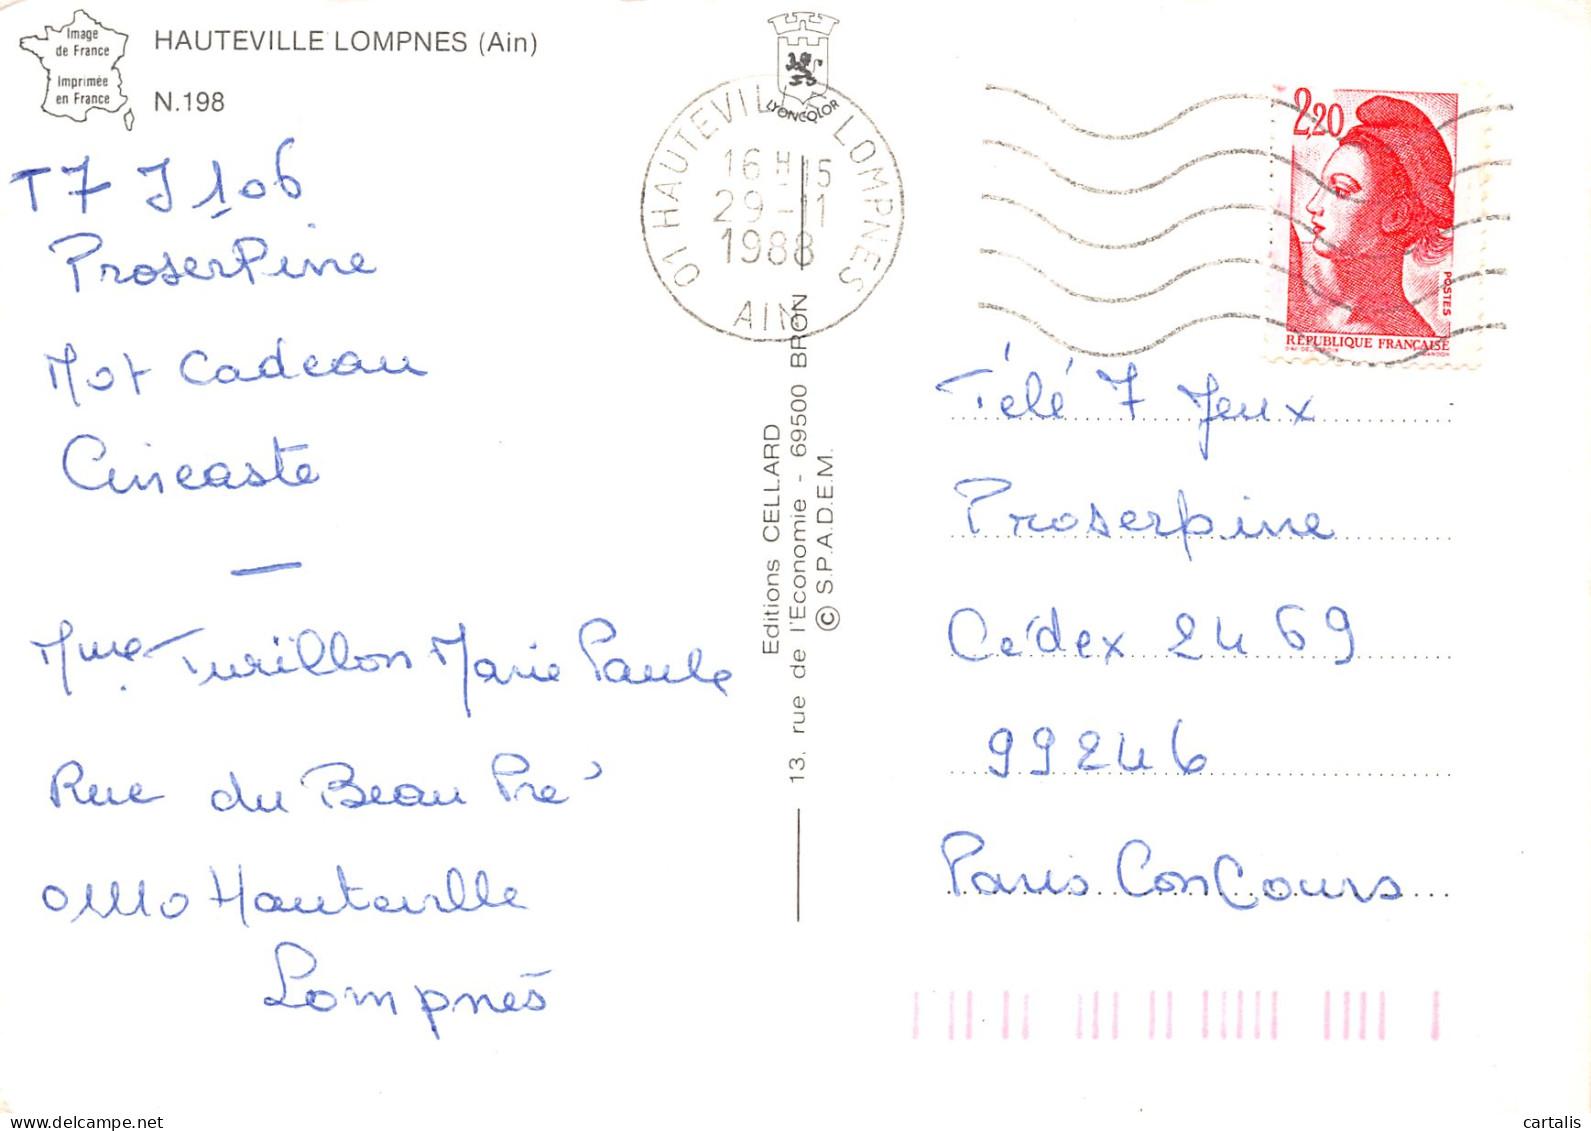 Image
de France
Imprimée
en France
HAUTEVILLE LOMPNES (Ain)
N.198
T7 J 106
ProserPine
Mot Cadeau
Cinéaste
—
Mme Turillon Marie Paule
Rue du Beau Pré
01110 Hauteville
Lompnès
LYONCOLOR
01 HAUTEVILLE LOMPNES
16 H 15
29 - 11
1988
AIN
Editions CELLARD
13, rue de l'Economie - 69500 BRON
© S.P.A.D.E.M.
2,20
POSTES
RÉPUBLIQUE FRANÇAISE
Télé 7 Jeux
Proserpine
Cédex 2469
99246
Paris ConCours
cartalis
www.delcampe.net